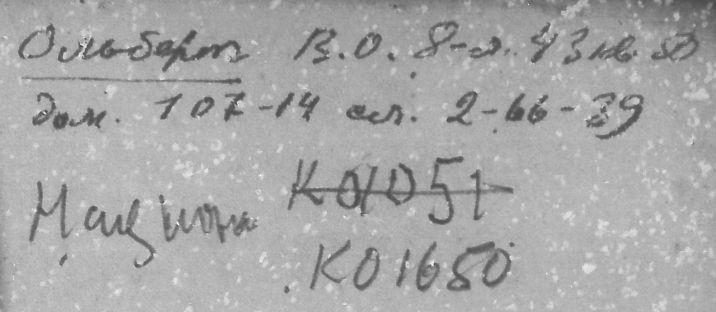 Ольберт В.О. 8-л. 43 кв.
дом. 107-14 сл. 2-66-39
К01051
К01650